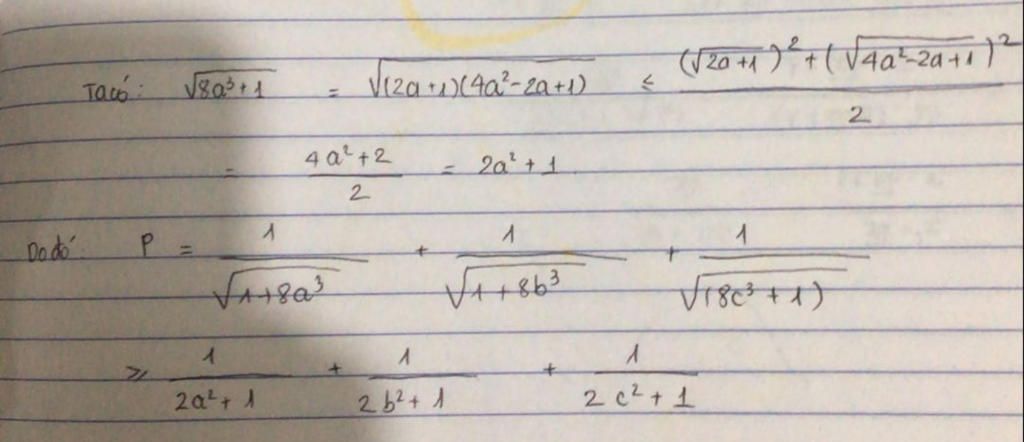 Ta có: √(8a³+1) = √((2a+1)(4a²-2a+1)) ≤ ((√(2a+1))² + (√(4a²-2a+1))²)/2
= (4a²+2)/2 = 2a²+1.
Do đó: P = 1/√(1+8a³) + 1/√(1+8b³) + 1/√(18c³+1)
≥ 1/(2a²+1) + 1/(2b²+1) + 1/(2c²+1)